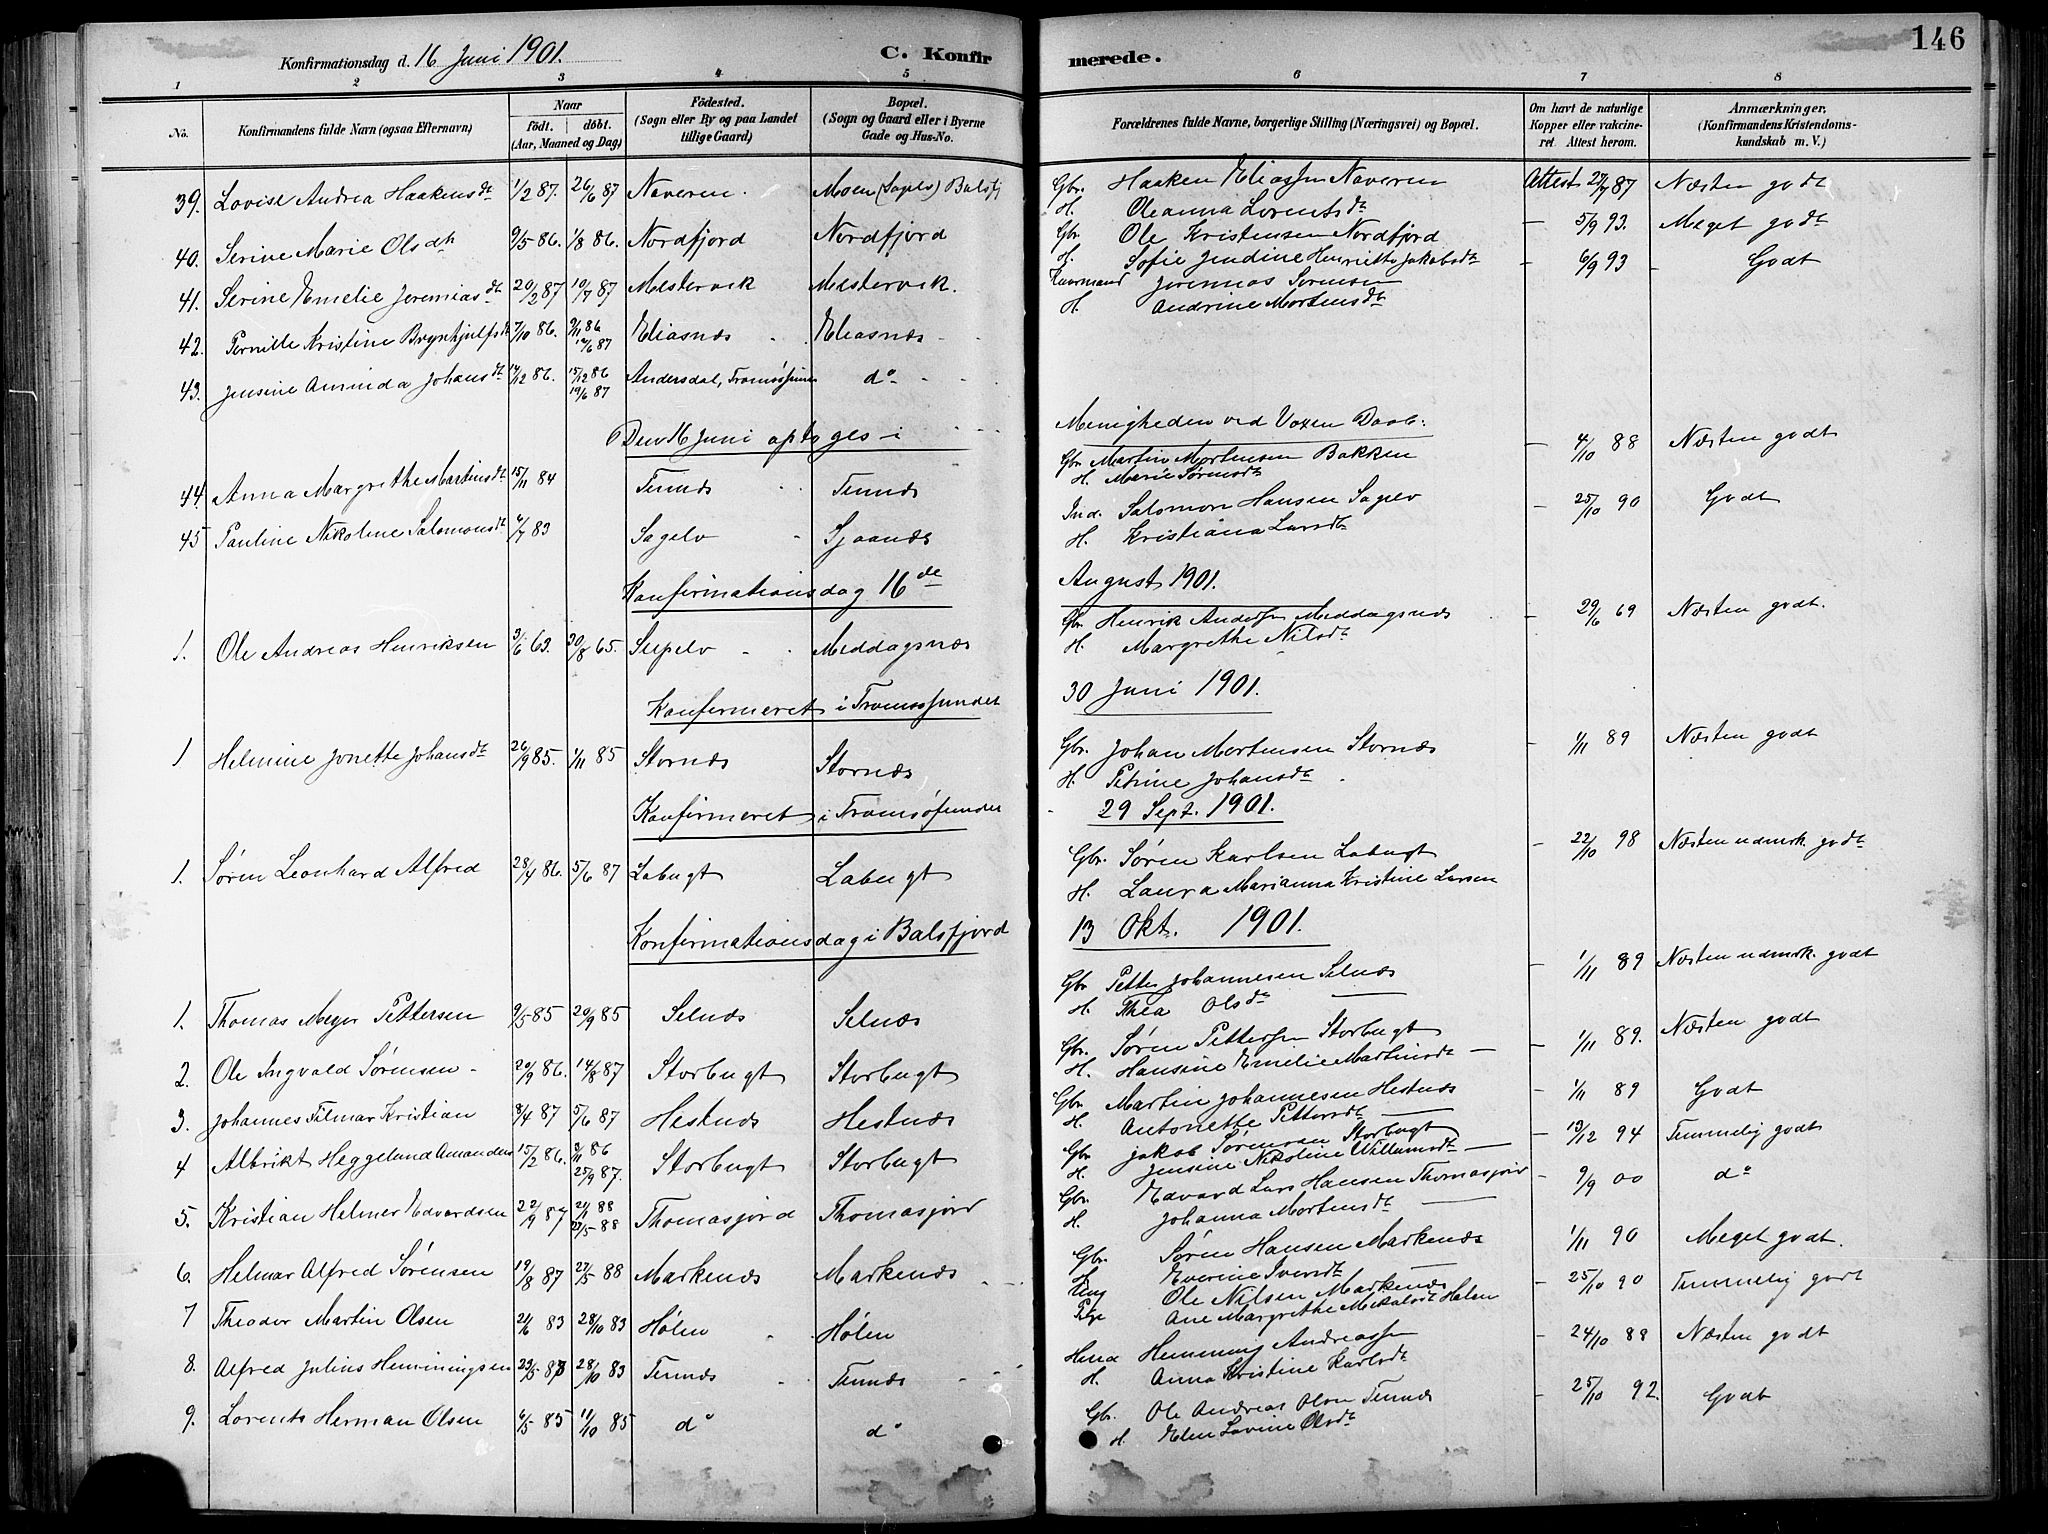 146
Konfirmationsdag d. 16 Juni 1901. C. Konfirmerede.
1 2 3 4 5 6 7 8
No. Konfirmandens fulde Navn (ogsaa Efternavn) Naar født. døbt. (Aar, Maaned og Dag) Fødested. (Sogn eller By og paa Landet tillige Gaard) Bopæl. (Sogn og Gaard eller i Byerne Gade og Hus-No. Forældrenes fulde Navne, borgerlige Stilling (Næringsvei) og Bopæl. Om havt de naturlige Kopper eller vakcineret. Attest herom. Anmærkninger. (Konfirmandens Kristendomskundskab m. V.)
39. Lovise Andrea Haakensdt 1/2 87. 26/6 87 Naveren. Moen (Sagelv) Balsfj Gbr. Haaken Eliassen Naveren Attest 29/7 87 Næsten godt
H. Oleanna Lorentsdt
40. Serine Marie Olsdt 9/5 86. 1/8 86. Nordfjord Nordfjord Gbr. Ole Kristensen Nordfjord — 5/9 93. Meget godt
H. Sofie Jendine Henriette Jakobsdt
41. Serine Emelie Jeremiasdt 20/2 87 10/7 87 Mestervik Mestervik. Jeremias Sørensen — 6/9 93 Godt
H. Andrine Mortensdt
42. Pernille Kristine Brynhjulfsdt 7/10 86. 9/11 86 12/6 87 Eliasnæs Eliasnæs
43. Jensine Aminda Johansdt 14/12 86. 15/12 86 19/6 87 Andersdal, Tromsøsundet do
Den 16 Juni optoges i Menigheden ved Voxen Daab:
44. Anna Margrethe Martinsdt 15/11 84 Tennæs Tennæs Gbr Martin Mortensen Bakken — 4/10 88 Næsten godt
H. Marie Sørensdt
45 Pauline Nikoline Salomonsdt. 6/7 83 Sagelv Sjaanæs Ind. Salomon Hansen Sagelv — 25/10 90 Godt
H. Kristiana Larsdt
Konfirmationsdag 16de August 1901.
1. Ole Andreas Henriksen 3/6 63. 30/8 65. Seipelv Meddagsnæs Gbr Henrik Anderssen Meddagsnæs — 29/6 69 Næsten godt.
H. Margrethe Nilsdt
Konfirmeret i Tromsøsundet 30 Juni 1901.
1 Helmine Jonette Johansdt 26/9 85. 1/11 85 Stornæs Stornæs Gbr. Johan Mortensen Stornæs — 1/11 89 Næsten godt
H. Petrine Johansdt
Konfirmeret i Tromsøsundet 29 Sept. 1901.
1. Søren Leonhard Alfred 28/4 86. 5/6 87 Labugt Labugt Gbr. Søren Karlsen Labugt — 22/10 98 Næsten udmrk. godt
H. Laura Marianna Kristine Larsen
Konfirmationsdag i Balsfjord 13 Okt. 1901.
1. Thomas Meyer Pettersen 9/5 85 20/9 85 Selnæs Selnæs Gbr Petter Johannesen Selnæs — 1/11 89 Næsten udmrk. godt
H. Thea Olsdt
2. Ole Ingvald Sørensen 20/9 86. 14/8 87 Storbugt Storbugt Gbr. Søren Pettersen Storbugt — 1/11 89. Næsten godt
H. Hansine Emelie Martinsdt
3. Johannes Tilmar Kristian 8/4 87 5/6 87 Hestnæs Hestnæs Gbr. Martin Johannesen Hestnæs — 1/11 89 Godt
H. Antonette Pettersdt
4 Albrikt Heggelund Amandus 15/2 86. 3/11 86 25/9 87. Storbugt Storbugt Gbr Jakob Sørensen Storbugt — 13/12 94 Temmelig godt
H. Jensine Nikoline Willumsdt
5. Kristian Helmer Edvardsen 22/9 87 21/1 88 27/5 88 Thomasjord Thomasjord Gbr. Edvard Lars Hansen Thomasjord — 9/9 00 do
H. Johanna Mortensdt
6. Helmar Alfred Sørensen 19/8 87 27/5 88 Markenæs Markenæs Gbr. Søren Hansen Markenæs — 1/11 90 Meget godt.
H. Everine Iversdt
7 Theodor Martin Olsen 21/6 83 28/10 83 Hølen Hølen Ung Ole Nilsen Markenæs — 25/10 90 Temmelig godt
Pige Ane Margrethe Mikalsdt Hølen
8. Alfred Julius Hemmingsen 29/5 83 28/10 83 Tennæs Tennæs Hemming Andreassen — 24/10 88 Næsten godt
H. Anna Kristine Karlsdt
9. Lorents Herman Olsen 6/5 85 11/10 85 do do Gbr. Ole Andreas Olsen Tennæs — 25/10 92. Godt
H. Elen Lovine Olsdt